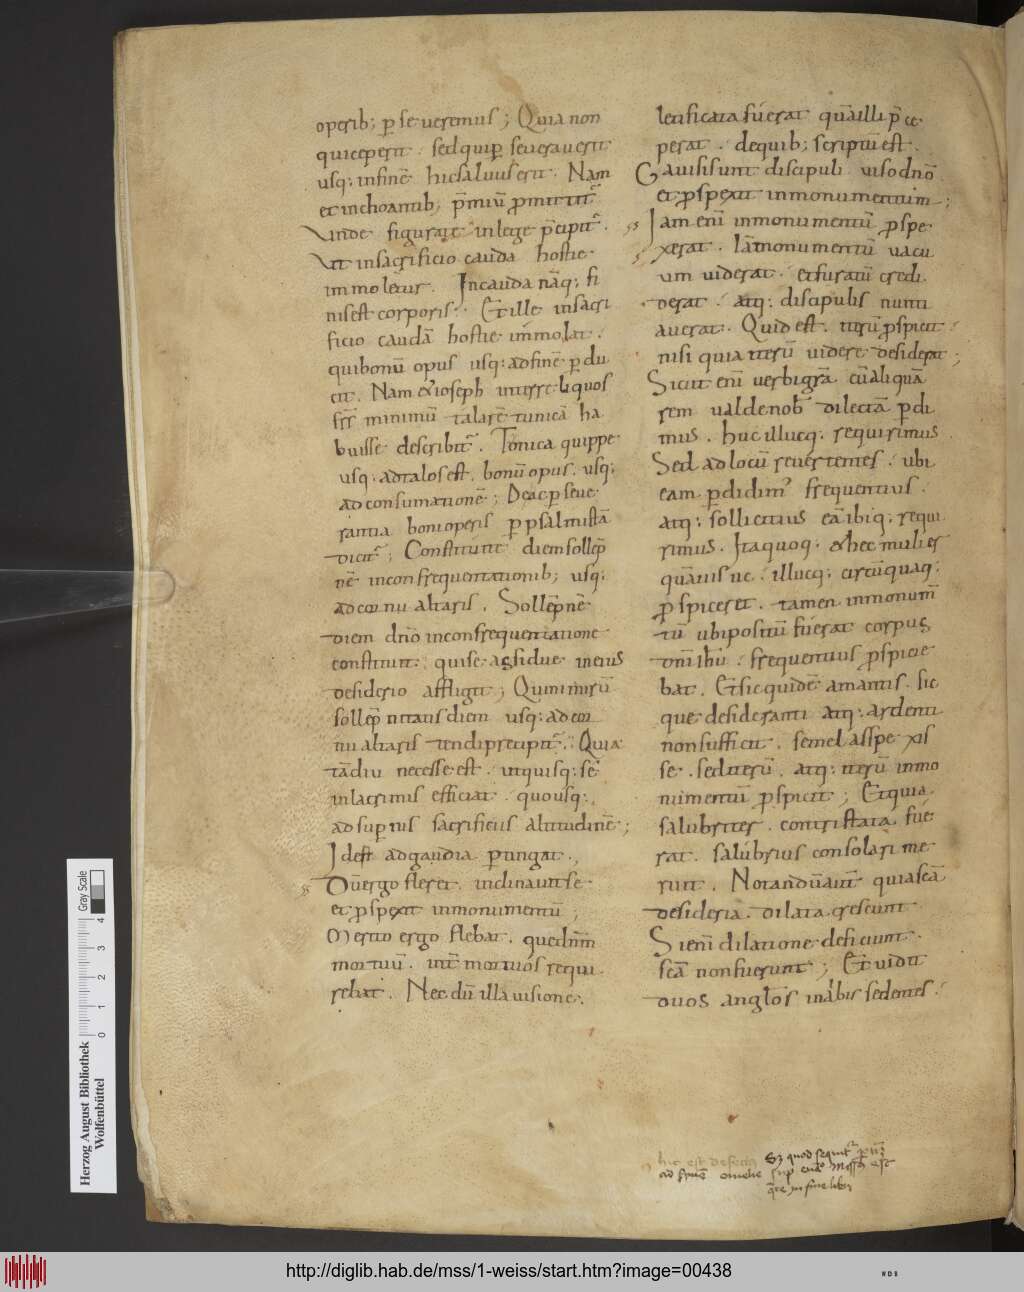 operib; p seueremus; Quia non
qui ceperit. sed qui p seuerauerit
usq; in finē hic saluus erit. Nam
et inchoantib; p̄miū p̄mittit̄
Vnde figurate in lege p̄cipit̄.
Vt in sacrificio cauda hostie
immoletur. In cauda nāq; fi
nis est corporis. Et ille in sacri
ficio caudā hostie immolat.
qui bonū opus usq; ad finē p du
cit. Nam et ioseph inter reliquos
frs̄ minimū talarē tunicā ha
buisse describit̄. Tonica quippe
usq; ad talos est. bonū opus. usq;
ad consumationē; De ac p seue
rantia boni operis p psalmistā
dicit̄; Constituite diem sollēp
nē in confrequentationib; usq;
ad cornu altaris. Sollēpnē
diem dn̄o in confrequentatione
constituit. qui se assidue in eius
desiderio affligit; Qui nimirū
sollēpnitatis diem usq; ad cor
nu altaris tendi precipit̄. Quia
tādiu necesse est. ut quisq; sē
in lacrimis efficiat. quousq;
ad supernis sacrificiis altitudinē;
Id est ad gaudia p tingat.
Dū ergo fleret. inclinauit se
et p̄spexit in monumentū;
Merito ergo flebat. que dn̄m
mortuū. int̄ mortuos requi
rebat. Nec dū illa uisione
letificata fuerat quā illi p̄ce
perat. de quib; scriptū est.
Gauisi sunt discipuli uiso dn̄o
et p̄spexit in monumentum;
Iam eni in monumentū p̄spe
xerat. Iā monumentū uacu
um uiderat. et furatū credi
derat. atq; discipulis nunti
auerat. Quid est. iterū p̄spicit
nisi quia iterū uidere desiderat;
Sicut eni uerbi gr̄a cū aliquā
rem ualde nob̄ dilectā p di
mus. huc illucq; requirimus
Sed ad locū reuertentes. ubi
eam p didim' frequentius.
atq; sollicitius eā ibiq; requi
rimus. Ita quoq; et hec mulier
quāuis uc. illucq; circūquaq;
p̄spiceret. tamen in monum̄
tū ubi positū fuerat corpus
dn̄i ih̄u. frequentius p̄spicie
bat. Et sic quidē amantis. sic
que desideranti atq; ardenti
non sufficit. semel asspexis
se. sed iterū. atq; iterū in mo
numentū p̄spicit; Et quia
salubriter. contristata fue
rat. salubrius consolari me
ruit. Notandū aut̄ quia scā
desideria. dilata crescunt.
Si eni dilatione deficiunt.
scā non fuerunt; Et uidit
duos angelos in albis sedentes.
hic est defectus Sz quod sequit̄
ad finē omelie
q̄re in fine libri
Herzog August Bibliothek
Wolfenbüttel
0 1 2 3 4
Gray Scale
http://diglib.hab.de/mss/1-weiss/start.htm?image=00438